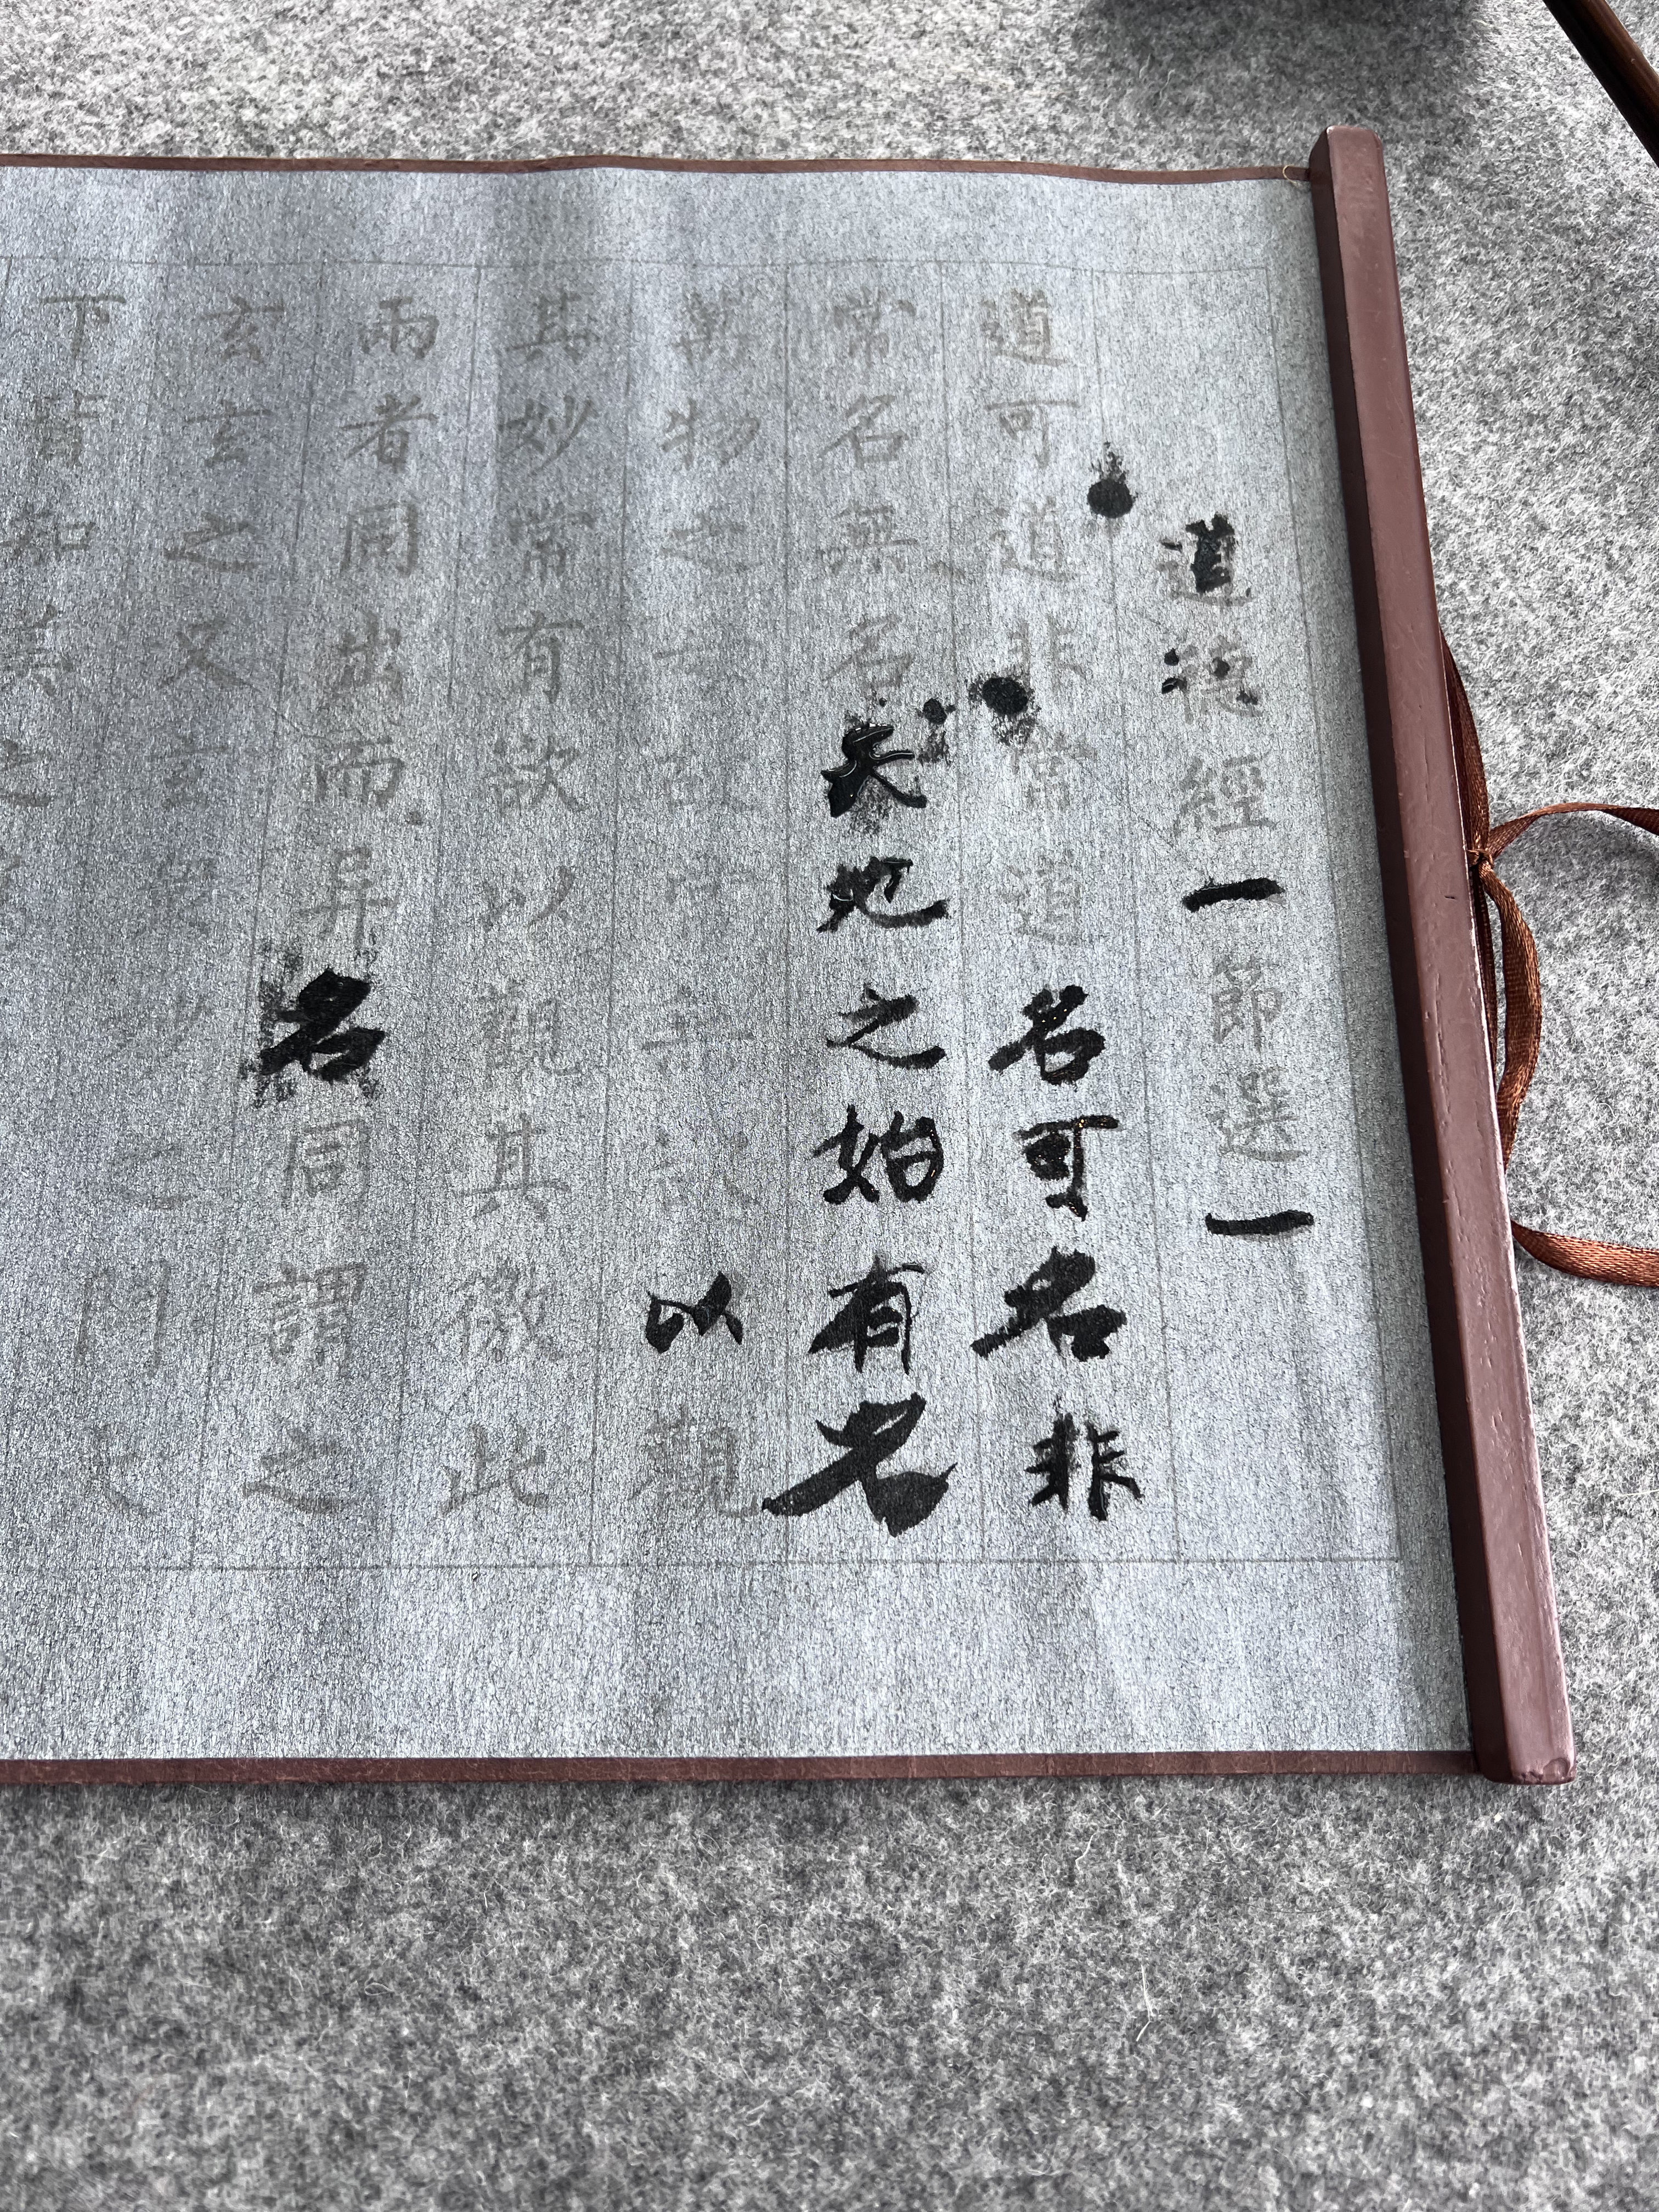 道德經一節選一
道可道非常道名可名非
常名無名天地之始有名
萬物之母故常無欲以觀
其妙常有欲以觀其徼此
兩者同出而异名同謂之
玄玄之又玄眾妙之門天
下皆知美之